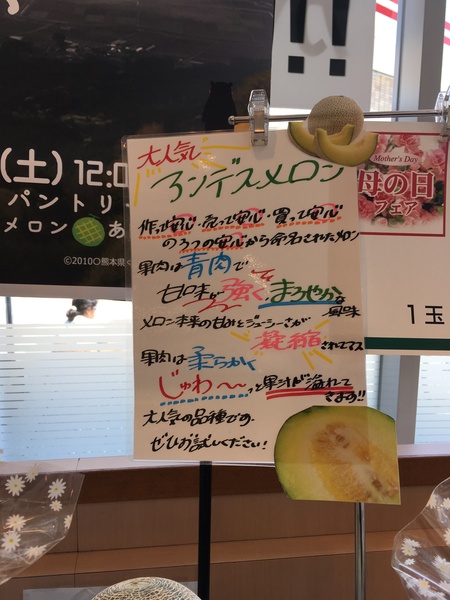 (土) 12:0
パントリ
メロン あ
©2010熊本県く
!!
大人気!
アンデスメロン
作って安心・売って安心・買って安心
の3つの安心から命名されたメロン
果肉は青肉で
甘味が強く、まろやかな
風味
メロン本来の甘みとジューシーさが
凝縮されてます
果肉は柔らかく
じゅわ〜っと果汁が溢れて
きます!!
大人気の品種です。
ぜひお試しください!
Mother's Day
母の日
フェア
1玉